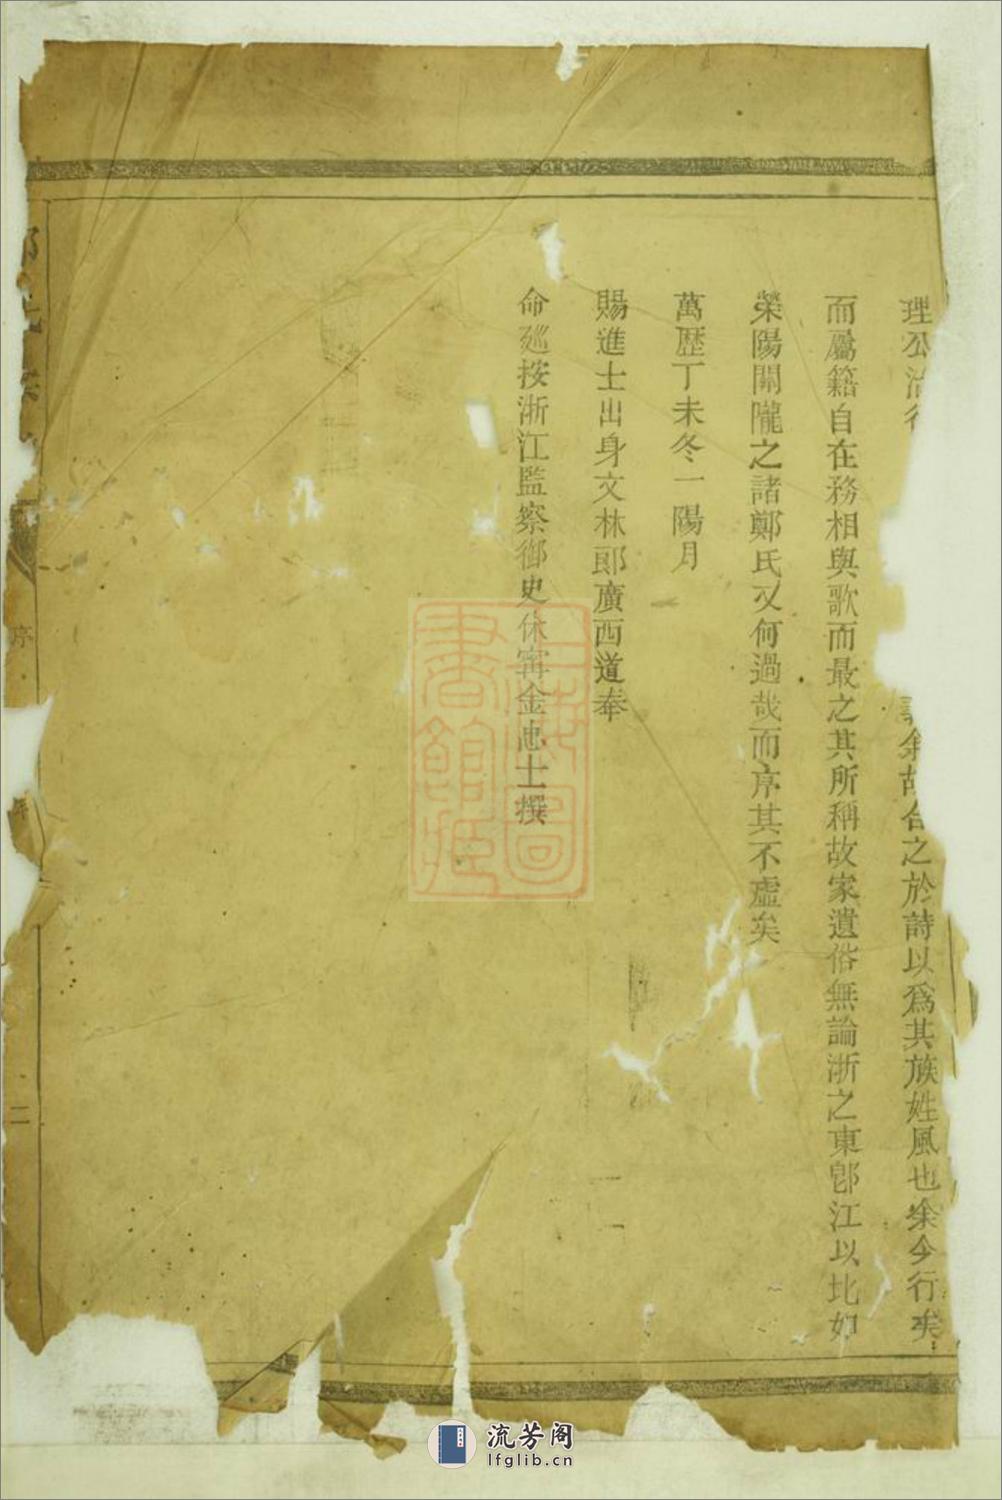 理公治行義余故合之於詩以爲其族姓風也余今行矣
而屬籍自在務相與歌而最之其所稱故家遺俗無論浙之東卽江以北如
滎陽關隴之諸鄭氏又何過哉而序其不虛矣
萬歷丁未冬一陽月
賜進士出身文林郞廣西道奉
命廵按浙江監察御史休寗金忠士撰
序
二
上海圖書館藏
流芳阁
lfglib.cn